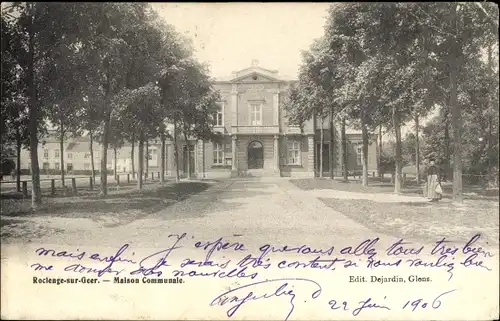 mais enfin J'espère que vous allez tous très bien
Roclenge-sur-Geer. — Maison Communale.
Edit. Dejardin, Glene.
me donner de vos nouvelles Je serais très content, si vous voulez bien
22 Juin 1906